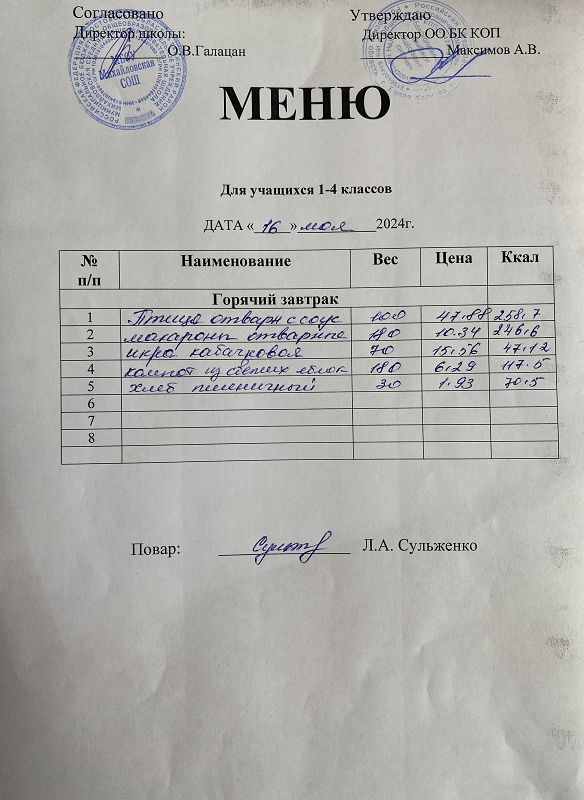 Согласовано Утверждаю
Директор школы: Директор ОО БК КОП
О.В.Галацан Максимов А.В.
МБОУ
Михайловская
СОШ
МЕНЮ
Для учащихся 1-4 классов
ДАТА « 16 » мая 2024г.
№ п/п Наименование Вес Цена Ккал
Горячий завтрак
1 Птица отварн с соус 100 47.88 258,7
2 макароны отварные 180 10.34 246,6
3 икра кабачковая 70 15,56 47,12
4 компот из свежих яблок 180 6,29 117.5
5 хлеб пшеничный 30 1.93 70,5
6
7
8
Повар: Л.А. Сульженко